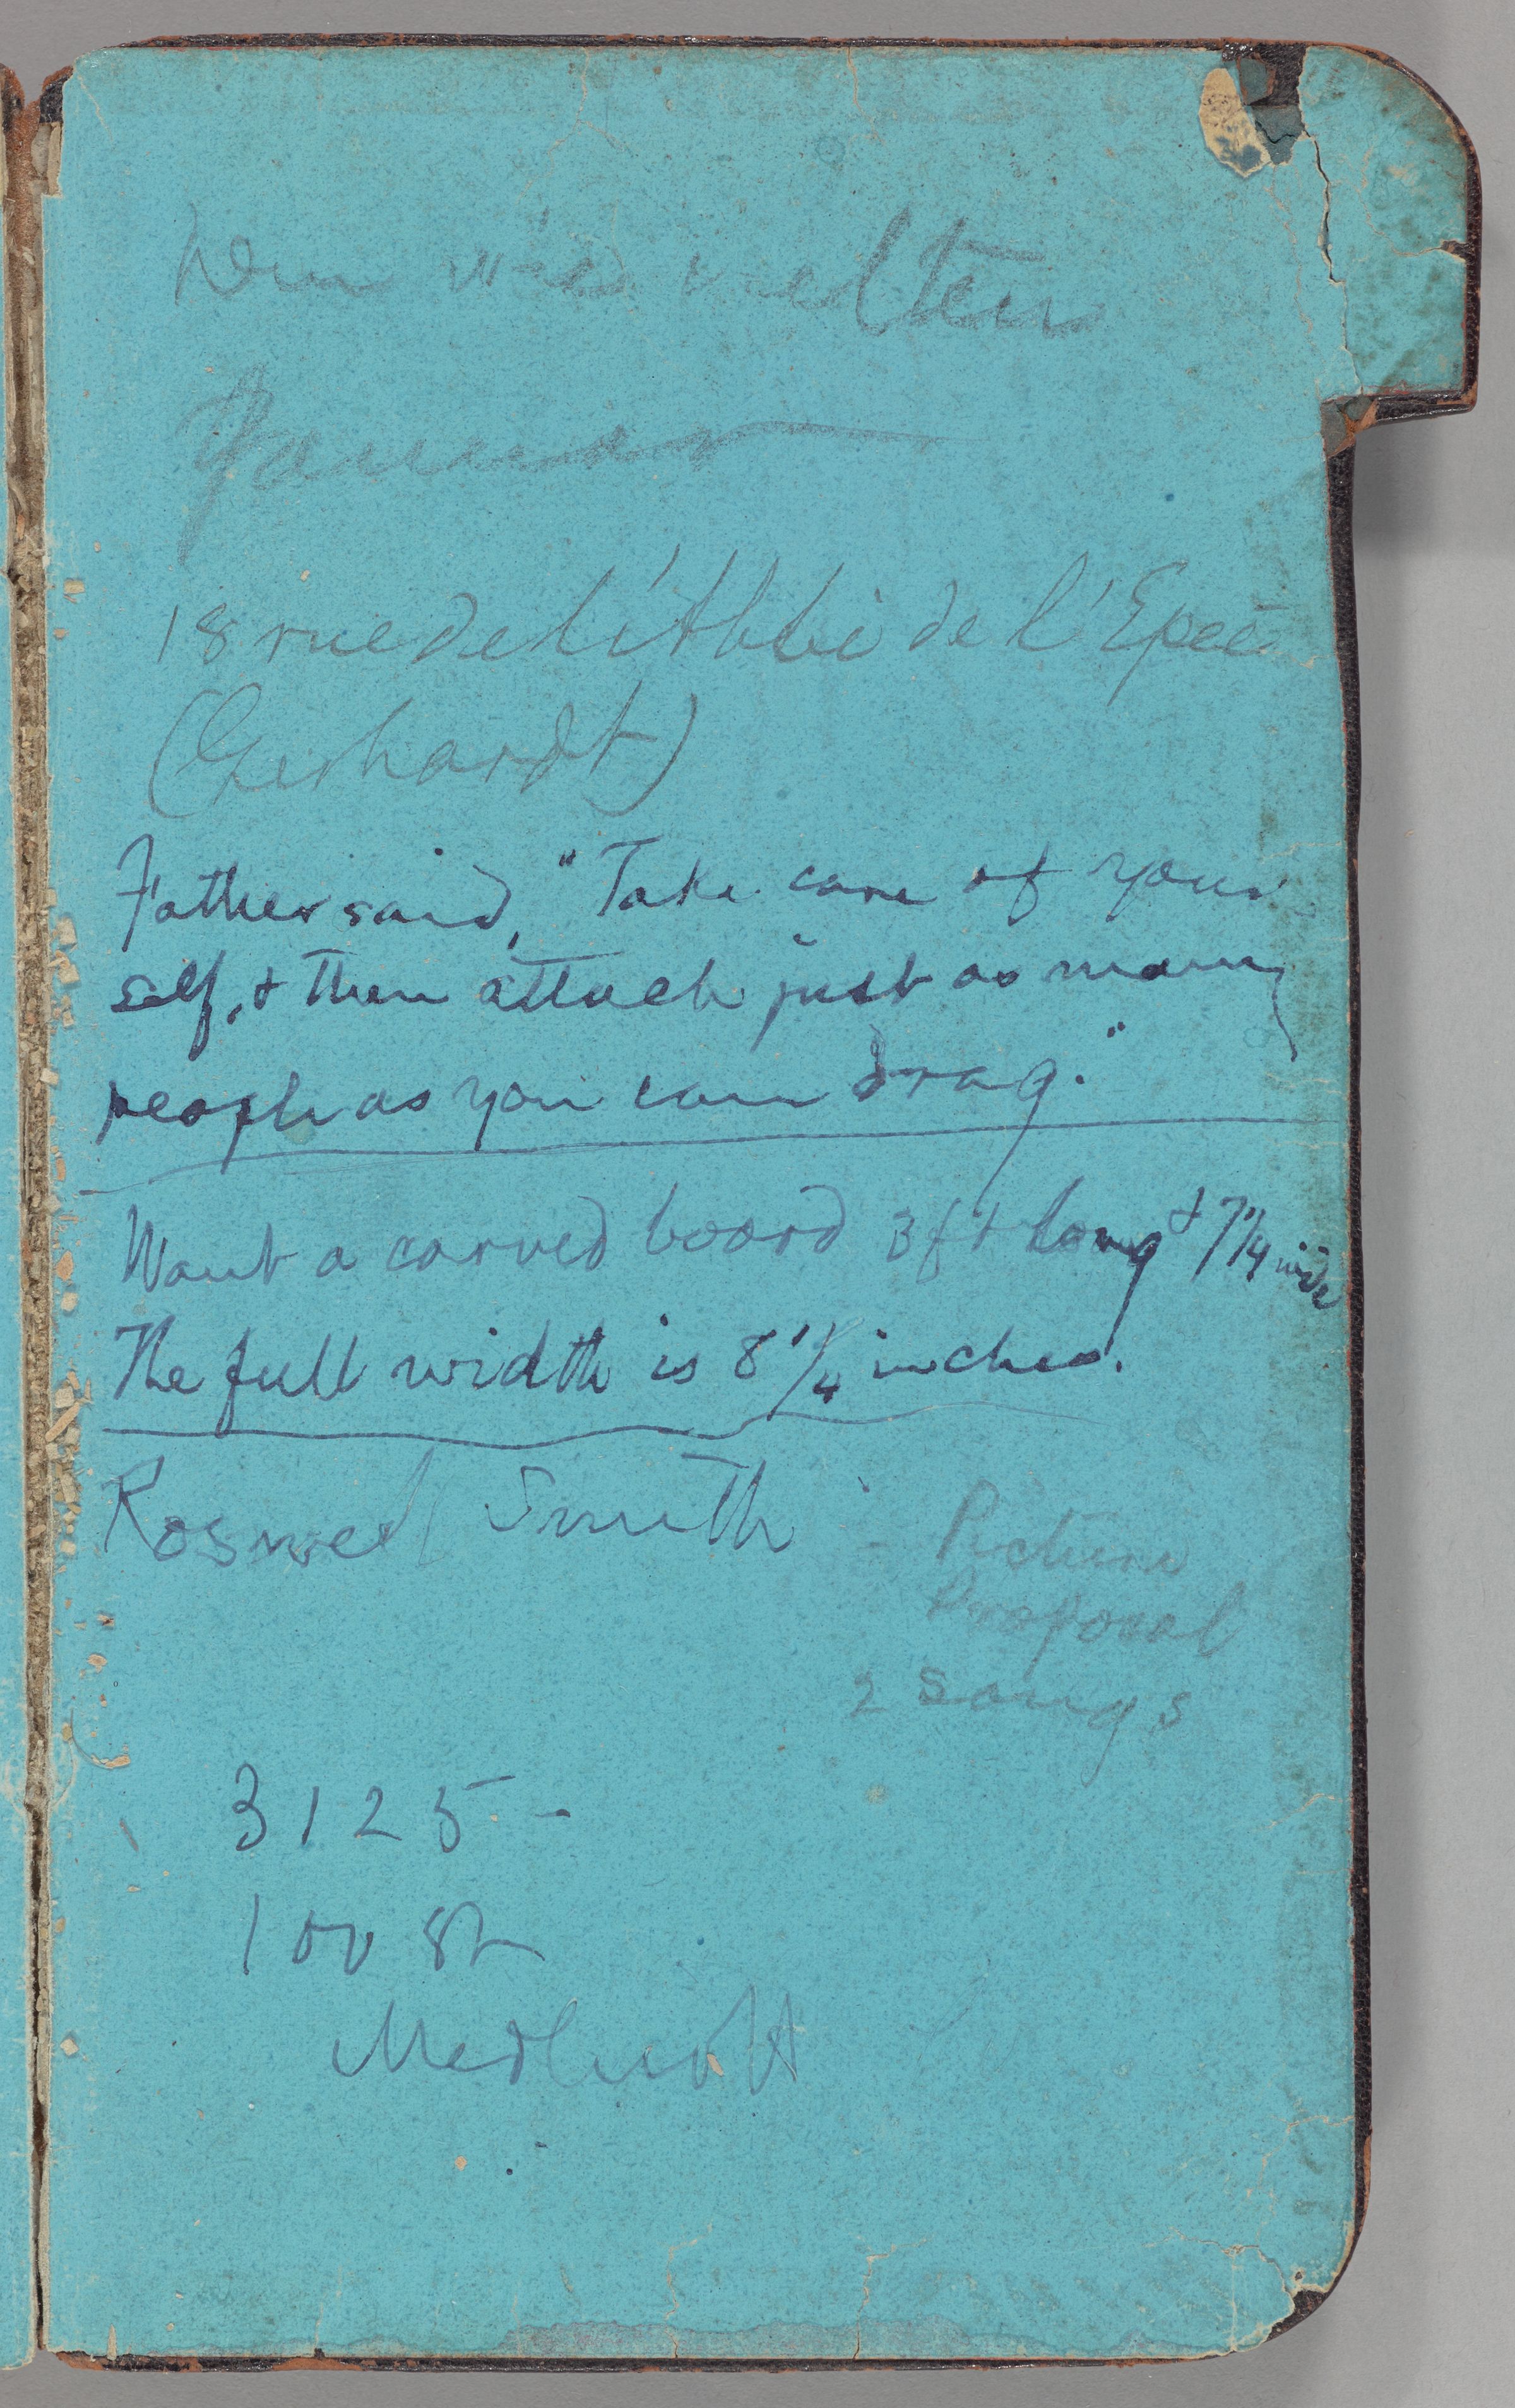 18 rue de l'Abbé de l'Epeé
(Gerhardt)
Father said, "Take care of your
self, & then attach just as many
people as you can drag."
Want a carved board 3 ft long & 7 1/4 wide
The full width is 8 1/4 inches.
Roswell Smith - Picture
Proposal
2 Songs
3125 -
100 82